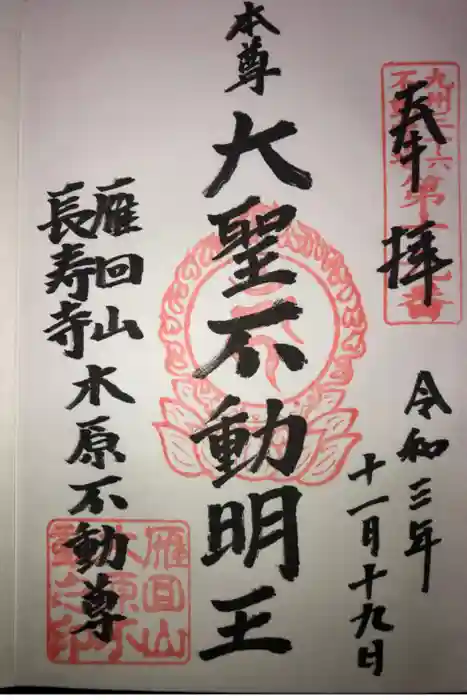 奉拝
令和三年
十一月十九日
本尊
大聖不動明王
雁回山
長寿寺
木原不動尊